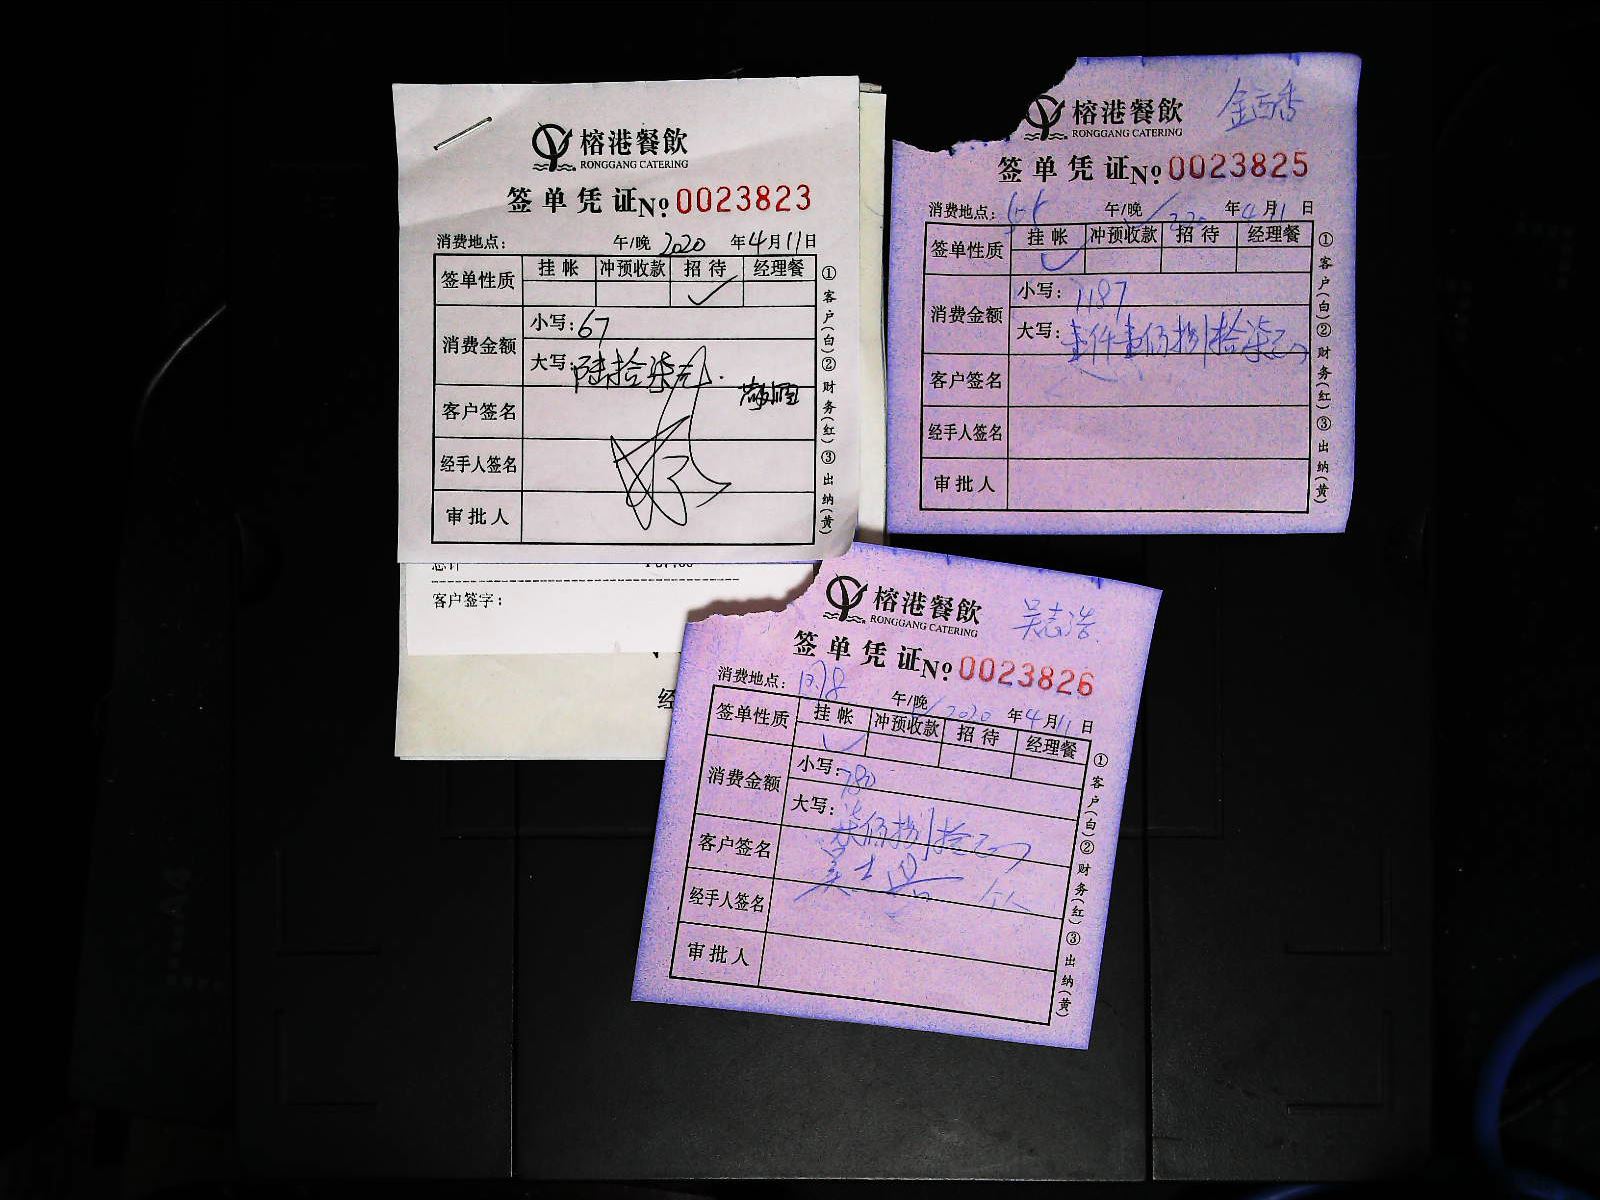 榕港餐飲
RONGGANG CATERING
签单凭证№0023823
消费地点: 午/晚 2020 年4月11日
签单性质 挂帐 冲预收款 招待 经理餐
✓
消费金额 小写:67
大写:陆拾柒元
客户签名
经手人签名
审批人
①客户(白)②财务(红)③出纳(黄)
总计
客户签字:
经
榕港餐飲
RONGGANG CATERING
签单凭证№0023825
消费地点: 午/晚 2020 年4月11日
签单性质 挂帐 冲预收款 招待 经理餐
✓
消费金额 小写:1187
大写:壹仟壹佰捌拾柒元
客户签名
经手人签名
审批人
①客户(白)②财务(红)③出纳(黄)
榕港餐飲 吴志浩
RONGGANG CATERING
签单凭证№0023826
消费地点: 午/晚 2020 年4月11日
签单性质 挂帐 冲预收款 招待 经理餐
✓
消费金额 小写:780
大写:柒佰捌拾元
客户签名 个人
经手人签名
审批人
①客户(白)②财务(红)③出纳(黄)